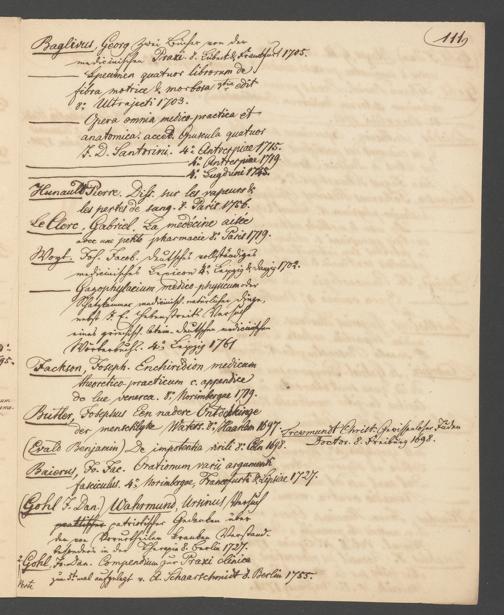 111
Baglivus, Georg zwei Bücher von der
medicinischen Praxi. 8. Lübeck & Franckfurt 1705.
——— Specimen quatuor librorum de
fibra motrice & morbosa edit
8. Ultrajecti 1703.
——— Opera omnia medico practica et
anatomica. acced. Opuscula quatuor
J. D. Santorini. 4. Antverpiae 1715.
——— 4. Antverpiae 1719.
——— 4. Lugduni 1745.
Hunauld Pierre. Diss. sur les vapeurs &
les pertes de sang. 8. Paris 1756.
Le Clerc, Gabriel. La medecine aisée
avec une petite pharmacie 8. Paris 1719.
Vogt, Joh. Jacob. Deutsches vollständiges
medicinisches Lexicon 4. Leipzig & 1702.
——— Gazophylacium medico physicum oder
Schatzkammer medicinisch. natürlicher Dinge,
nebst J. E. Hebenstreits Versuch
eines griechisch. latein. deutschen medicinischen
Wörterbuchs. 4. Leipzig 1761
Jackson, Joseph. Enchiridion medicum
theoretico practicum c. appendice
de lue venerea. 8. Norimbergae 1719.
Buttler, Josephus Een nadere Ontdekkinge
der menschlyke Waters. 8. Haarlem 1697.
Treumundt Christ. Gewissenloser Juden
Doctor. 8. Freiburg 1698.
(Evalt Benjamin) De impotentia virili 8. Cöln 1698.
Baierus, Jo. Jac. Orationum varii argumenti
fasciculus. 4. Norimbergae, Francofurti & Lipsiae 1727.
(Gohl J. Dan.) Wahrmund, Ursinus, Versuch
patriotischer Gedanken über
den von Vorurtheilen kranken Verstand.
besonders in der Therapie 8. Berlin 1727.
Gohl, Jo. Dan. Compendium zur Praxi clinica
zum mal aufgelegt v. A. Schaarschmidt 8. Berlin 1755.